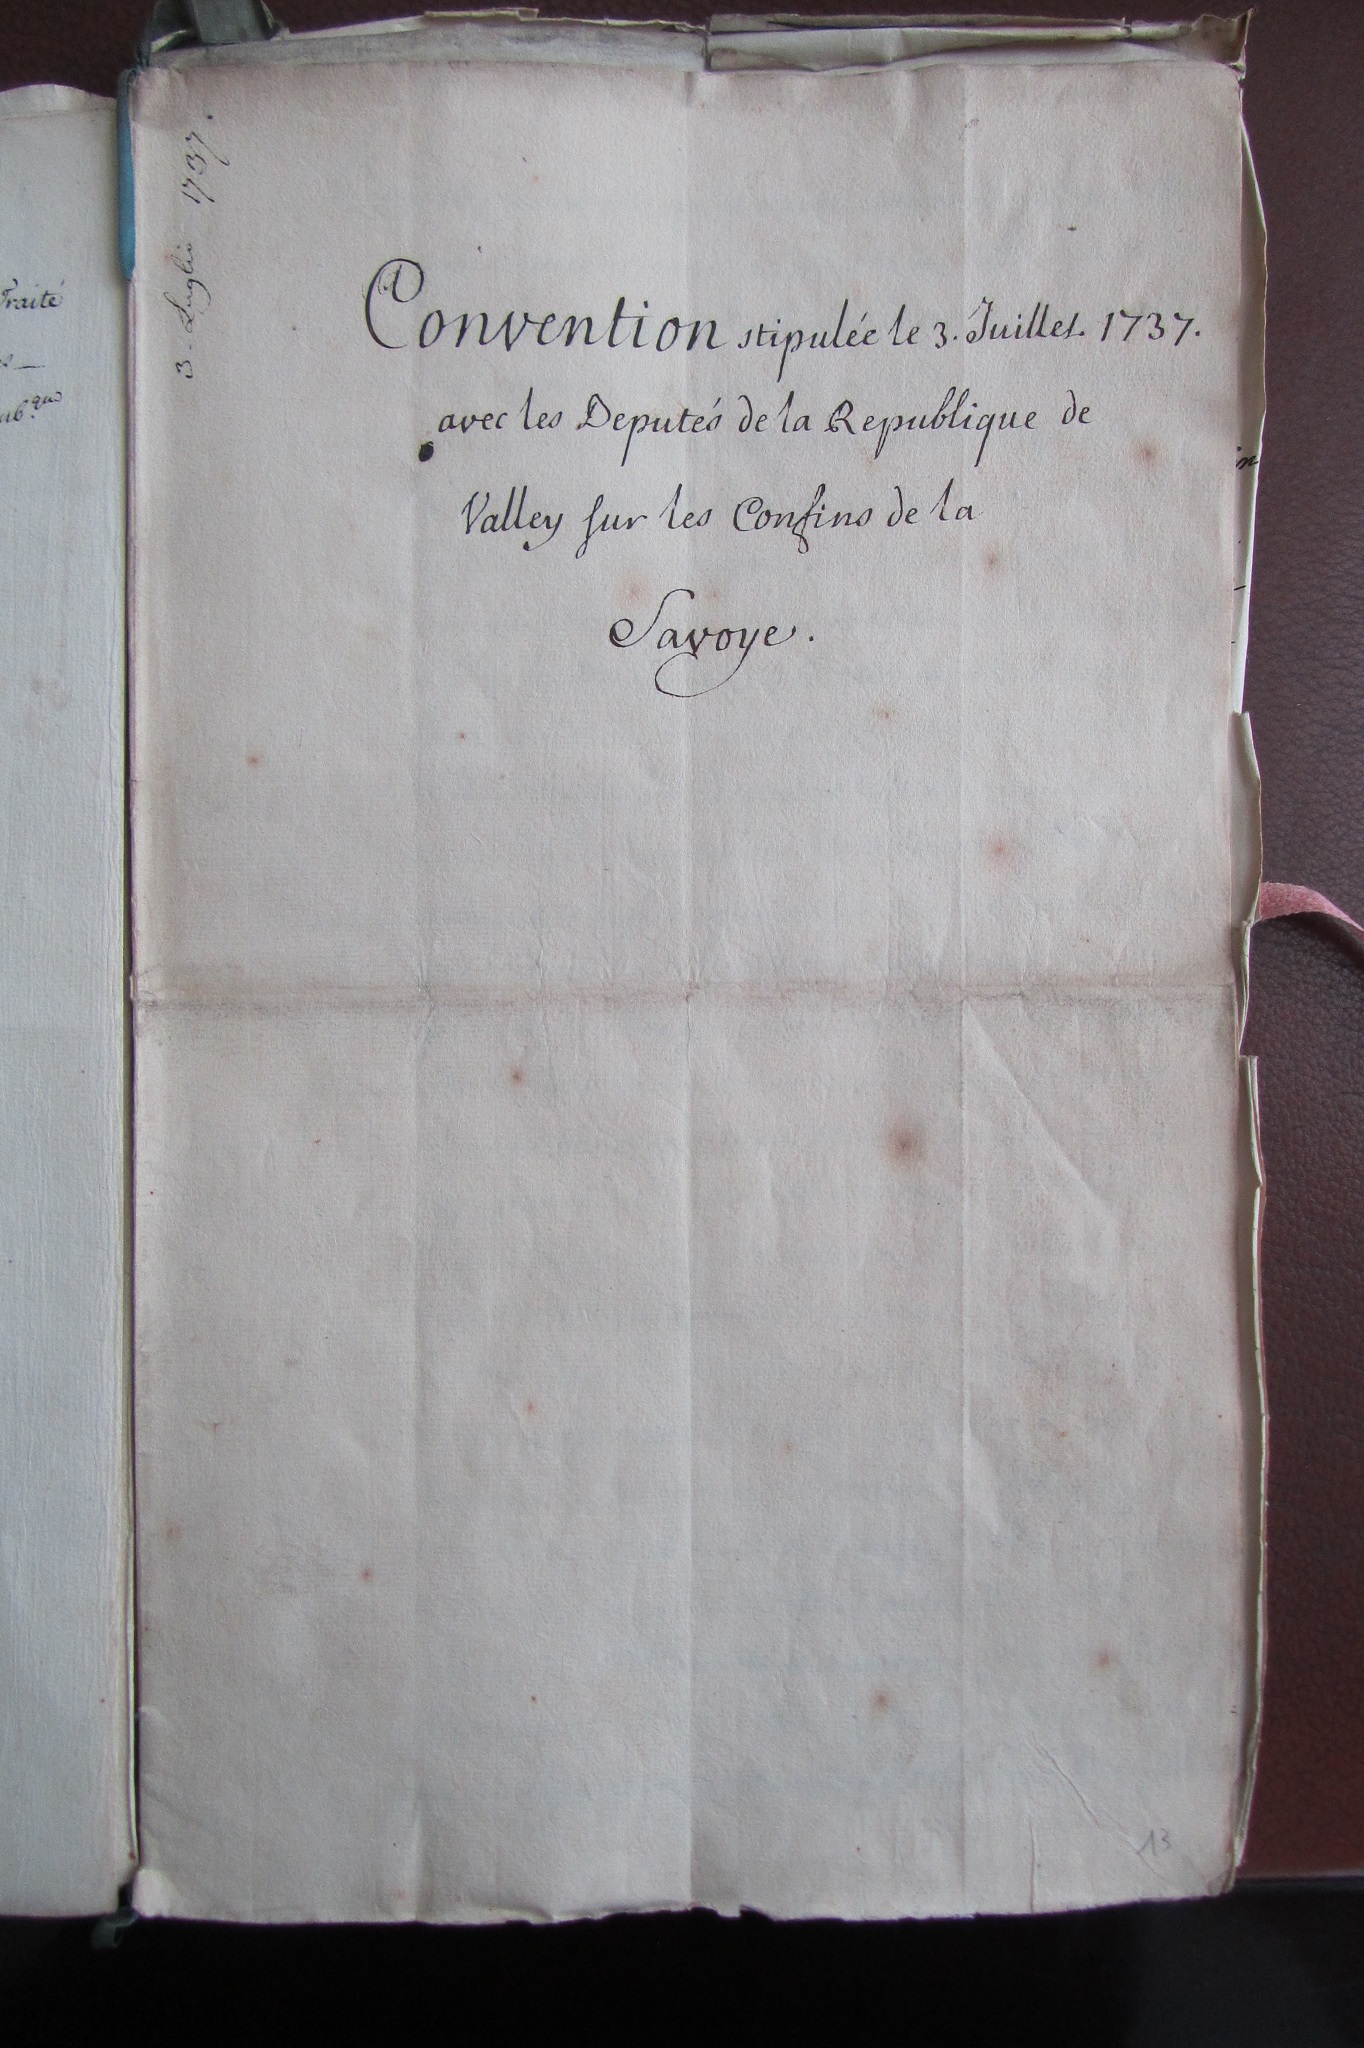 3. Luglio 1737.
Convention stipulée le 3. Juillet. 1737.
avec les Deputés de la Republique de
Valley sur les Confins de la
Savoye.
13
Traité